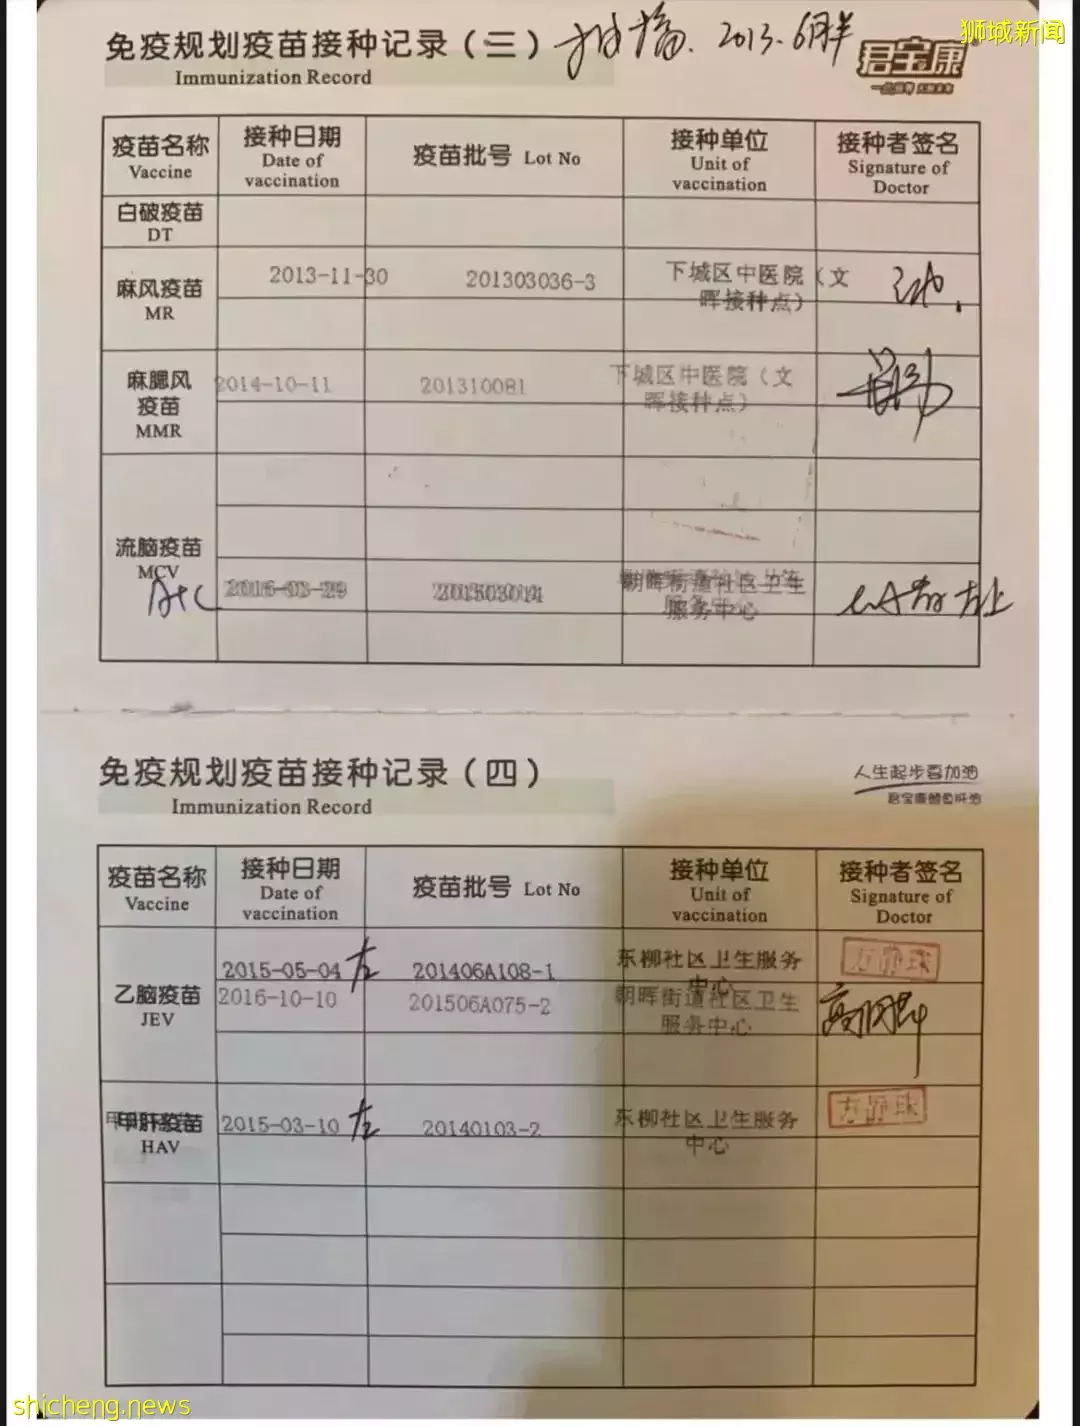 狮城新闻
免疫规划疫苗接种记录（三） 2013.6月半
Immunization Record
君宝康
疫苗名称 接种日期 疫苗批号 Lot No 接种单位 接种者签名
Vaccine Date of vaccination Unit of vaccination Signature of Doctor
白破疫苗
DT
麻风疫苗 2013-11-30 201303036-3 下城区中医院（文
MR 晖接种点）
麻腮风 2014-10-11 201310081 下城区中医院（文
疫苗 晖接种点）
MMR
流脑疫苗
MCV 朝晖街道社区卫生
A+C 服务中心
免疫规划疫苗接种记录（四）
Immunization Record
人生起步要加油
疫苗名称 接种日期 疫苗批号 Lot No 接种单位 接种者签名
Vaccine Date of vaccination Unit of vaccination Signature of Doctor
2015-05-04 左 201406A108-1 东柳社区卫生服务
中心
乙脑疫苗 2016-10-10 201506A075-2 朝晖街道社区卫生
JEV 服务中心
甲肝疫苗 2015-03-10 左 20140103-2 东柳社区卫生服务
HAV 中心
shicheng.news